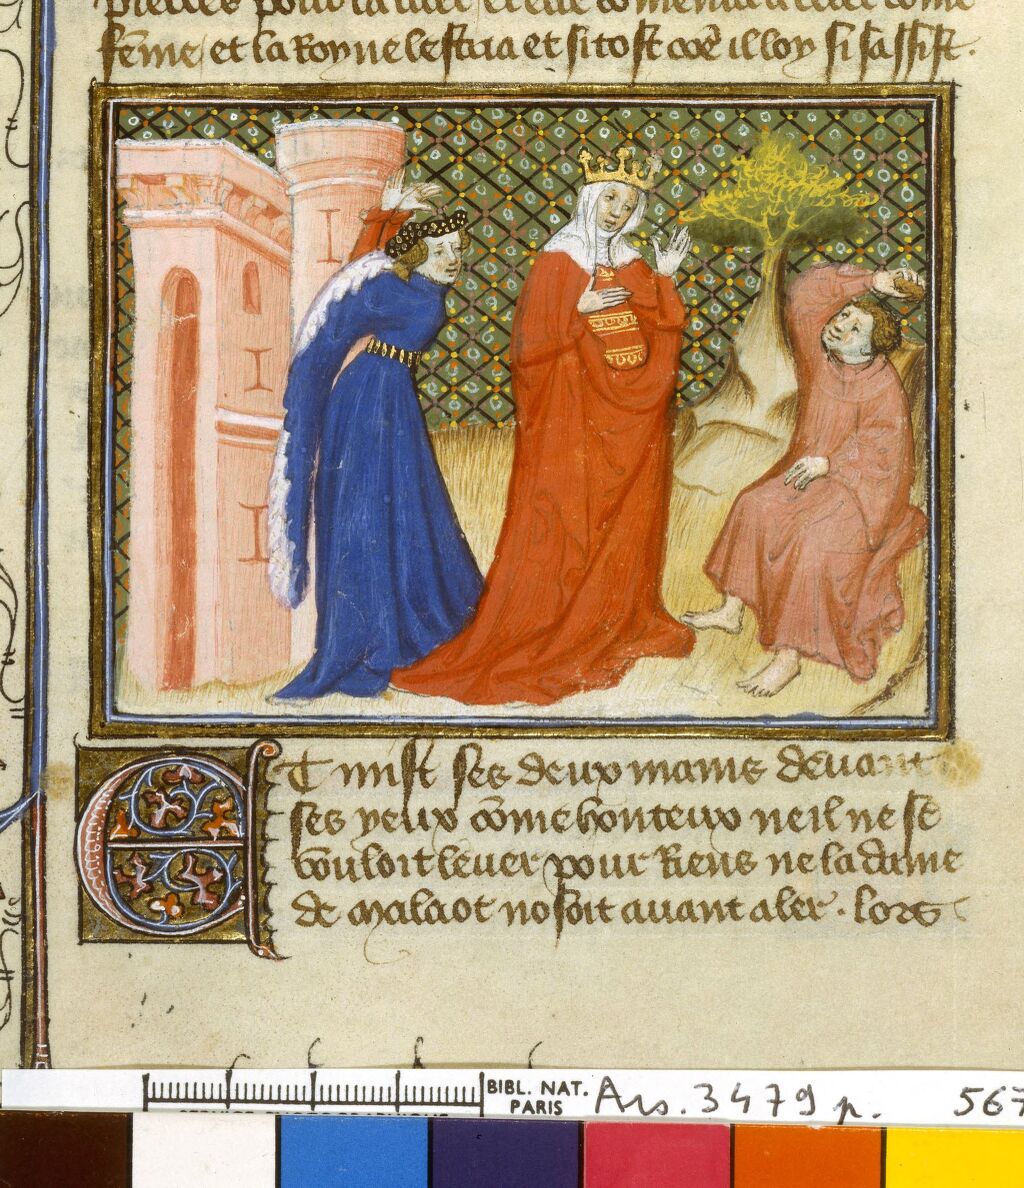 feme et la Royne lescria et si tost coe il loy si sassist.
Et mist ses deux mains devant
ses yeux cōme honteux ne il ne se
vouloit lever pour Riens ne la dame
de malaot nosoit avant aler. lors
BIBL. NAT.
PARIS
Ars. 3479 p. 567